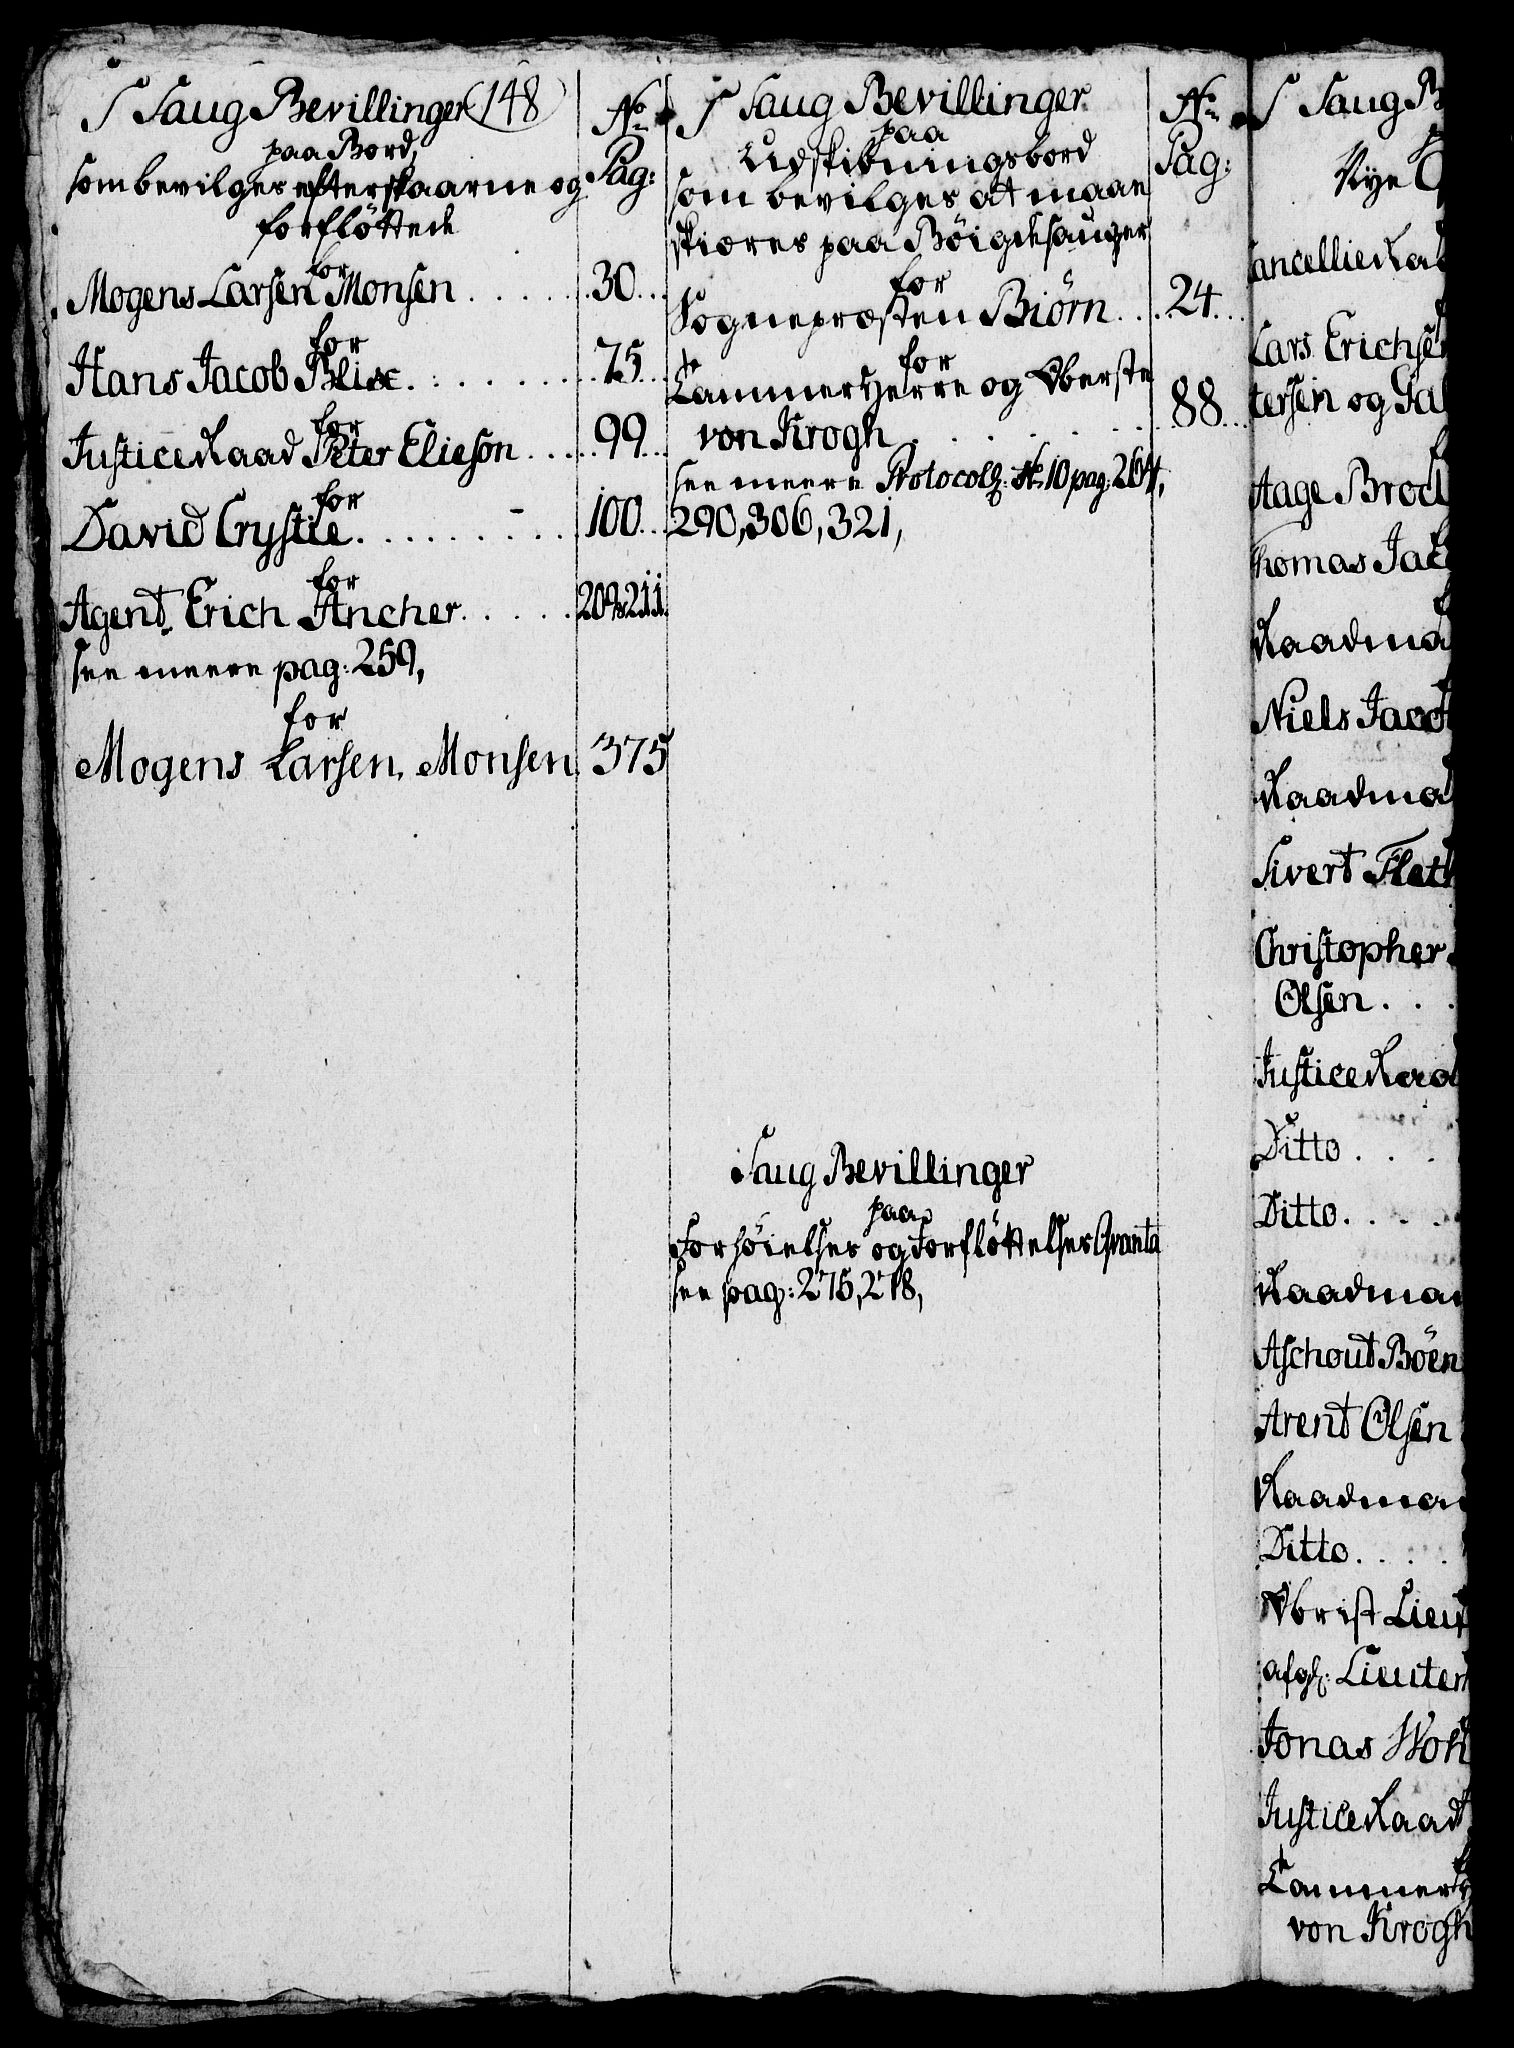 S Saug Bevillinger (148)
paa Bord,
som bevilges efterskaarne og
forfløttede
for
Mogens Larsen Monsen
for
Hans Jacob Blix
for
Justice Raad Peter Elieson
for
David Crystie
for
Agent Erich Ancher
see meere pag: 259,
for
Mogens Larsen Monsen
No
Pag:
30
75
99
100
209, 211
375
S Saug Bevillinger
paa
Udskibningsbord
som bevilges at maae
skiæres paa Böigdesauger
for
Sognepræsten Biörn
for
Cammerherre og Oberste
von Krogh
see meere Protocoll: No 10 pag: 264,
290, 306, 321,
Saug Bevillinger
paa
Forhöielses og Forflöttelses Qvanta
see pag: 275, 278,
No
Pag:
24
88
S Saug B
Nye
Cancellie Ra
Lars Erichse
tersen og
Aage Brod
Thomas Jac
Raadma
Niels Jacob
Raadma
Sivert Flet
Christopher
Olsen
Justice Raa
Ditto
Ditto
Raadman
Aschout Böen
Arent Olsen
Raadman
Ditto
Obrist Lieut
afgl: Lieuten
Jonas Woh
Justice Raad
Cammerh
von Krogh